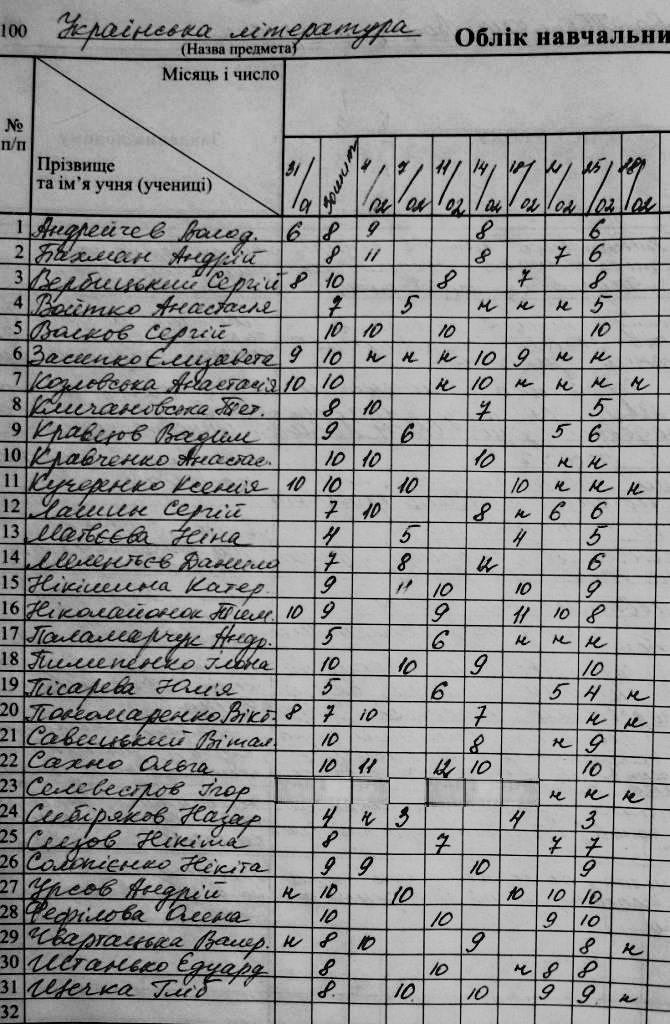 100 Українська література Облік навчальни
(Назва предмета)
№ п/п
Місяць і число
Прізвище та ім'я учня (учениці)
31/01 Зошит 4/02 7/02 11/02 14/02 18/02 21/02 25/02 28/02
1 Андрейчев Волод. 6 8 9 8 6
2 Бахман Андрій 8 11 8 7 6
3 Вербицький Сергій 8 10 8 7 8
4 Войтко Анастасія 7 5 н н н 5
5 Волков Сергій 10 10 10 10
6 Засипко Єлизавета 9 10 н н н 10 9 н н
7 Козловська Анастасія 10 10 н 10 н н н н
8 Кличановська Тет. 8 10 7 5
9 Кравцов Вадим 9 6 5 6
10 Кравченко Анастас. 10 10 10 н н
11 Кучеренко Ксенія 10 10 10 10 н н н
12 Лашин Сергій 7 10 8 н 6 6
13 Матвєєва Ніна 4 5 4 5
14 Мелентьєв Данило 7 8 12 6
15 Нікішина Катер. 9 11 10 10 9
16 Ніколайонок Тим. 10 9 9 11 10 8
17 Паламарчук Андр. 5 6 н н н
18 Пилипенко Ілона 10 10 9 10
19 Пісарева Юлія 5 6 5 4 н
20 Пономаренко Вікт. 8 7 10 7 н н
21 Савицький Вітал. 10 8 н 9
22 Сахно Ольга 10 11 12 10 10
23 Селевестров Ігор н н н
24 Сибіряков Назар 4 н 3 4 3
25 Сизов Нікіта 8 7 7 7
26 Солопієнко Нікіта 9 9 10 9
27 Урсов Андрій н 10 10 10 10 10
28 Фефілова Олена 10 10 9 10
29 Чвартацька Валер. н 8 10 9 8 н
30 Шстанько Едуард 8 10 н 8 8
31 Щечка Гліб 8 10 10 9 9 н
32